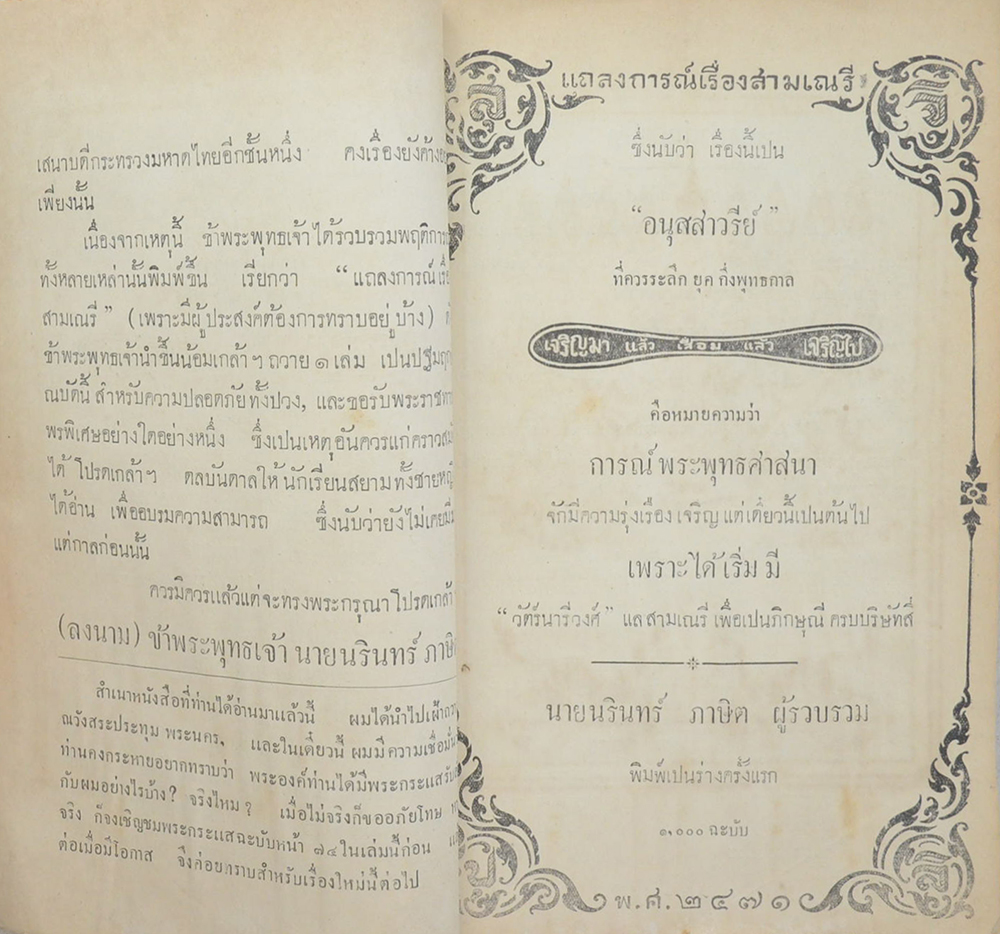 เสนาบดีกระทรวงมหาดไทยอีกชั้นหนึ่ง คงเรื่องยังค้าง
เพียงนั้น
เนื่องจากเหตุนี้ ข้าพระพุทธเจ้าได้รวบรวมพฤติการ
ทั้งหลายเหล่านั้นพิมพ์ขึ้น เรียกว่า “แถลงการณ์เรื่
สามเณรี” (เพราะมีผู้ประสงค์ต้องการทราบอยู่บ้าง)
ข้าพระพุทธเจ้านำขึ้นน้อมเกล้าฯ ถวาย ๑ เล่ม เปนปฐมฤก
ณบัดนี้ สำหรับความปลอดภัยทั้งปวง, และขอรับพระราชทา
พรพิเศษอย่างใดอย่างหนึ่ง ซึ่งเปนเหตุอันควรแก่คราวสมั
ได้โปรดเกล้าฯ ดลบันดาลให้นักเรียนสยามทั้งชายหญิ
ได้อ่าน เพื่ออบรมความสามารถ ซึ่งนับว่ายังไม่เคยมี
แต่กาลก่อนนั้น
ควรมิควรแล้วแต่จะทรงพระกรุณาโปรดเกล้า
(ลงนาม) ข้าพระพุทธเจ้า นายนรินทร์ ภาษิ
สำเนาหนังสือที่ท่านได้อ่านมาแล้วนี้ ผมได้นำไปเฝ้าถวา
ณวังสระประทุม พระนคร, และในเดี๋ยวนี้ ผมมีความเชื่อมั่น
ท่านคงกระหายอยากทราบว่า พระองค์ท่านได้มีพระกระแสรับ
กับผมอย่างไรบ้าง? จริงไหม? เมื่อไม่จริงก็ขออภัยโทษ
จริง ก็จงเชิญชมพระกระแสฉะบับหน้า ๗๔ ในเล่มนี้ก่อน
ต่อเมื่อมีโอกาส จึงค่อยทราบสำหรับเรื่องใหม่นี้ต่อไป
แถลงการณ์เรื่องสามเณรี
สุ
จิ
ซึ่งนับว่า เรื่องนี้เปน
“อนุสสาวรีย์”
ที่ควรระลึก ยุค กึ่งพุทธกาล
เจริญมา แล้ว เสื่อม แล้ว เจริญไป
คือหมายความว่า
การณ์พระพุทธศาสนา
จักมีความรุ่งเรือง เจริญ แต่เดี๋ยวนี้เปนต้นไป
เพราะได้เริ่มมี
“วัตร์นารีวงศ์” แลสามเณรี เพื่อเปนภิกษุณี ครบบริษัทสี่
นายนรินทร์ ภาษิต ผู้รวบรวม
พิมพ์เปนร่างครั้งแรก
๑,๐๐๐ ฉะบับ
ปุ
ลิ
พ.ศ.๒๔๗๑